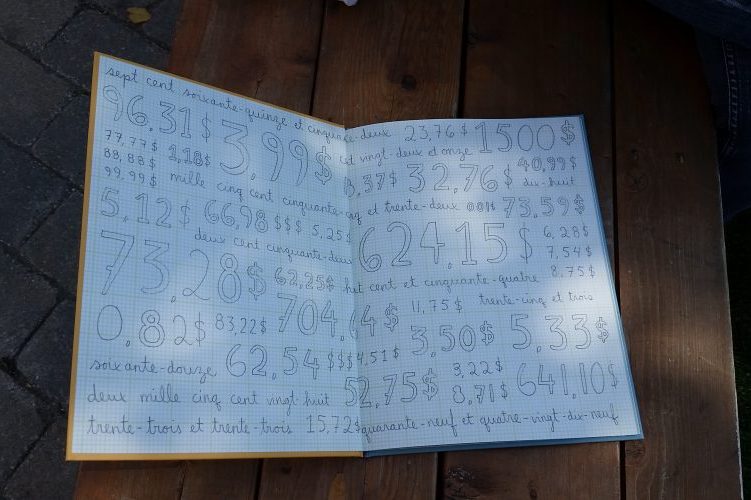 sept cent soixante-quinze et cinquante-deux 23,76$ 1500$
96,31$ 3,99$ cet vingt-deux et onze
77,77$ 1,18$ 40,99$
88,88$ 32,76$ dix-huit
99,99$ mille cinq cent cinquante-cinq et trente-deux 0.01$ 73,59$
5,12$ 66,98$$$ 5,25$ 6,28$
deux cent cinquante-deux 624,15$ 7,54$
73,28$ 62,25$ huit cent et cinquante-quatre 8,75$
0,82$ 83,22$ 704,64$ 11,75$ trente-cinq et trois
3,50$ 5,33$
soixante-douze 62,54$$$ 4,51$ 3,22$
deux mille cinq cent vingt-huit 52,75$ 8,71$ 641,10$
trente-trois et trente-trois 15,72$ quarante-neuf et quatre-vingt-dix-neuf